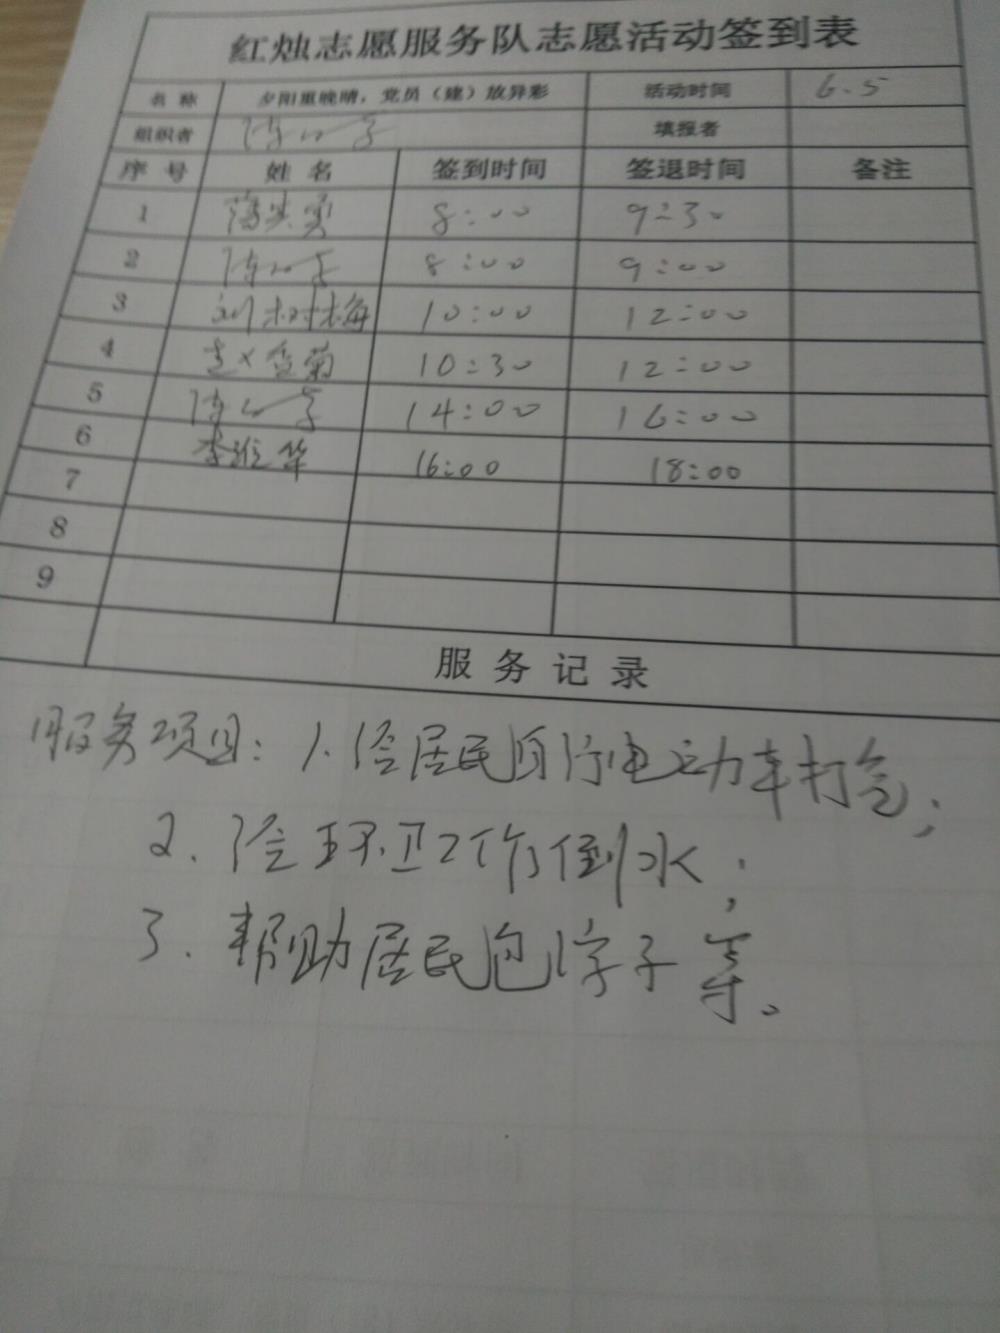 红烛志愿服务队志愿活动签到表
名称 夕阳重晚晴，党员（建）放异彩 活动时间 6.5
组织者 填报者
序号 姓名 签到时间 签退时间 备注
1 8:00 9:30
2 8:00 9:00
3 刘树梅 10:00 12:00
4 赵金菊 10:30 12:00
5 14:00 16:00
6 李维华 16:00 18:00
7
8
9
服务记录
服务项目：1.给居民自行电动车打气；
2.给环卫工作倒水；
3.帮助居民包饺子等。